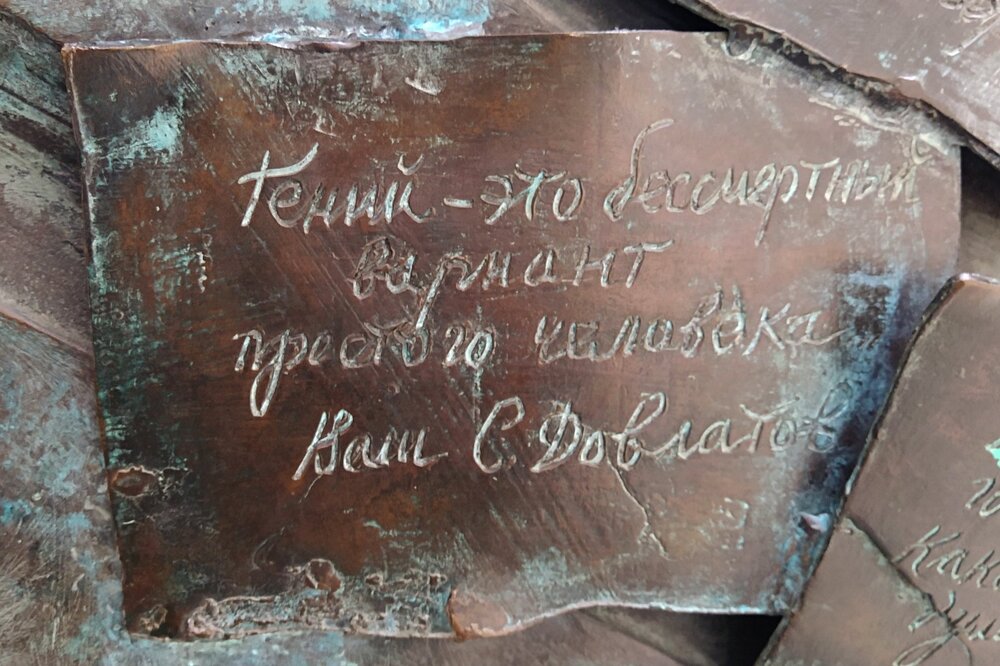 Гений - это бессмертный
вариант
простого человека
Ваш С. Довлатов